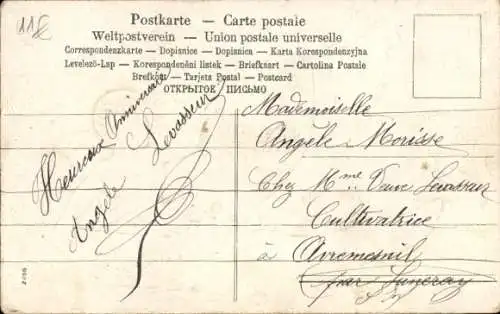 118
Postkarte — Carte postale
Weltpostverein — Union postale universelle
Correspondenzkarte — Dopisnice — Dopisnica — Karta Korespondenzyjna
Levelező-Lap — Korespondenční lístek — Briefkaart — Cartolina Postale
Brefkort — Tarjeta Postal — Postcard
ОТКРЫТОЕ ПИСЬМО
Heureux Anniversaire
Angèle Levasseur
Mademoiselle
Angèle Morisse
Chez Mme Veuve Levasseur
Cultivatrice
à Avremesnil
par Luneray
S. I.